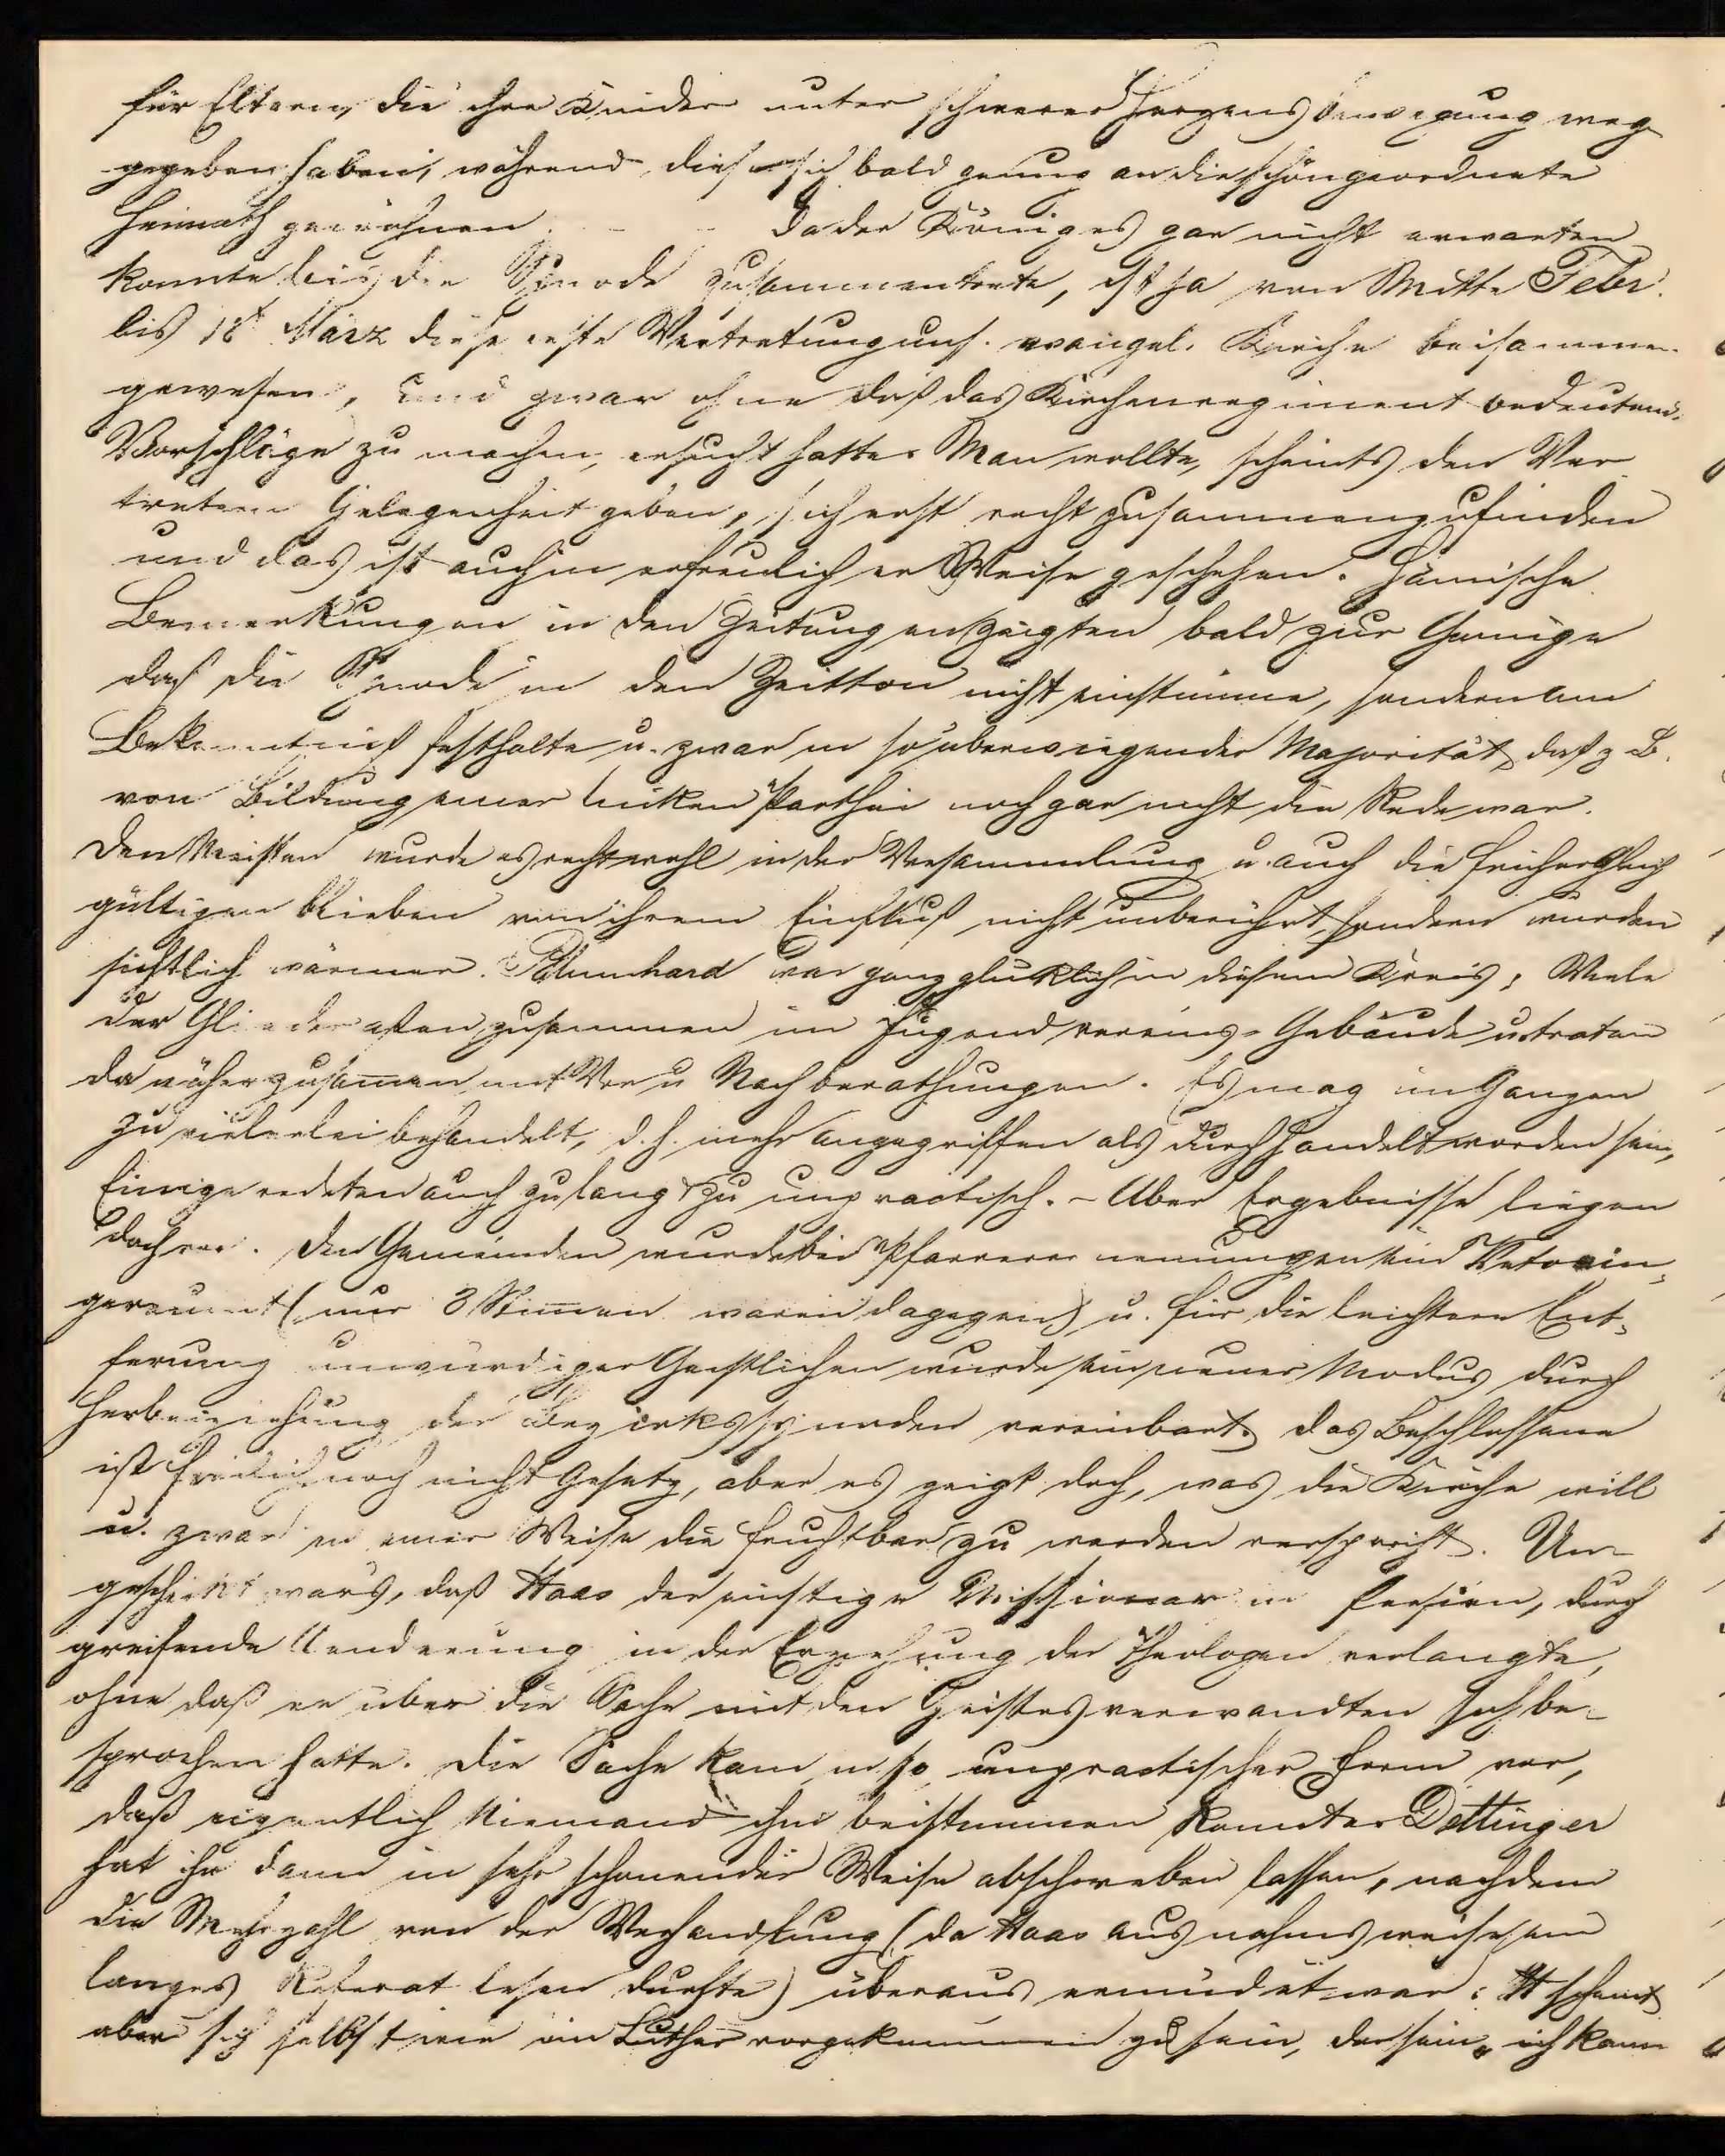 für Eltern, die ihre Kinder unter schwerer Herzensbewegung weg
gegeben haben, während diese sich bald genug an die schöngeordnete
Heimath gewöhnen. - - Da der König es gar nicht erwarten
konnte bis die Synode zusammentrete, ist ja von Mitte Febr.
bis 18t März diese erste Vertretung uns. evangel. Kirche beisammen
gewesen, und zwar ohne daß das Kirchenregiment bedeutend.
Vorschläge zu machen, ersucht hatte. Man wollte, scheints den Ver
tretern Gelegenheit geben, sich erst recht zusammenzufinden
und das ist auch in erfreulicher Weise geschehen. Hämische
Bemerkungen in den Zeitungen zeigten bald zur Genüge
daß die Synode in den Zeitton nicht einstimme, sondern am
Bekenntniß festhalte u. zwar in so überwiegender Majorität, daß z B.
von Bildung einer linken Parthei noch gar nicht die Rede war.
Den Meisten wurde es recht wohl in der Versammlung u. auch die früher Gleich
gültigen blieben von ihrem Einfluß nicht unberührt, sondern wurden
sichtlich wärmer. Blumhard war ganz glücklich in diesem Kreis; Viele
der Glieder aßen zusammen im Jugendvereins-Gebäude u. traten
da näher zusamen mit Vor u Nachberathungen. Es mag im Ganzen
zu vielerlei behandelt, d. h. mehr angegriffen als durchhandelt worden sein,
Einige redeten auch zu lang & zu unpractisch. - Aber Ergebnisse liegen
doch vor. Den Gemeinden wurde bei Pfarrerernennungen ein Veto ein-
geräumt (nur 3 Stimmen waren dagegen) u. für die leichtere Ent-
fernung unwürdiger Geistlichen wurde ein neuer Modus durch
Herbeiziehung der Bezirkssynoden vereinbart. das Beschlossene
ist freilich noch nicht Gesetz, aber es zeigt doch, was die Kirche will
u. zwar in einer Weise die fruchtbar zu werden verspricht. Un-
geschickt war's, daß Haas der einstige Missionar in Persien, durch
greifende Aenderung in der Erziehung der Theologen verlangte,
ohne daß er über die Sache mit den Geistesverwandten sich be-
sprochen hatte. Die Sache kam in so unpractischer Form vor,
daß eigentlich Niemand ihm beistimmen konnte. Dettinger
hat ihn dann in sehr schonender Weise abschweben lassen, nachdem
die Mehrzahl von der Verhandlung (da Haas ausnahmsweise ein
langes Referat lesen durfte) überaus ermüdet war. H scheint
aber sich selbst wie ein Luther vorgekommen zu sein, der sein „ich kann